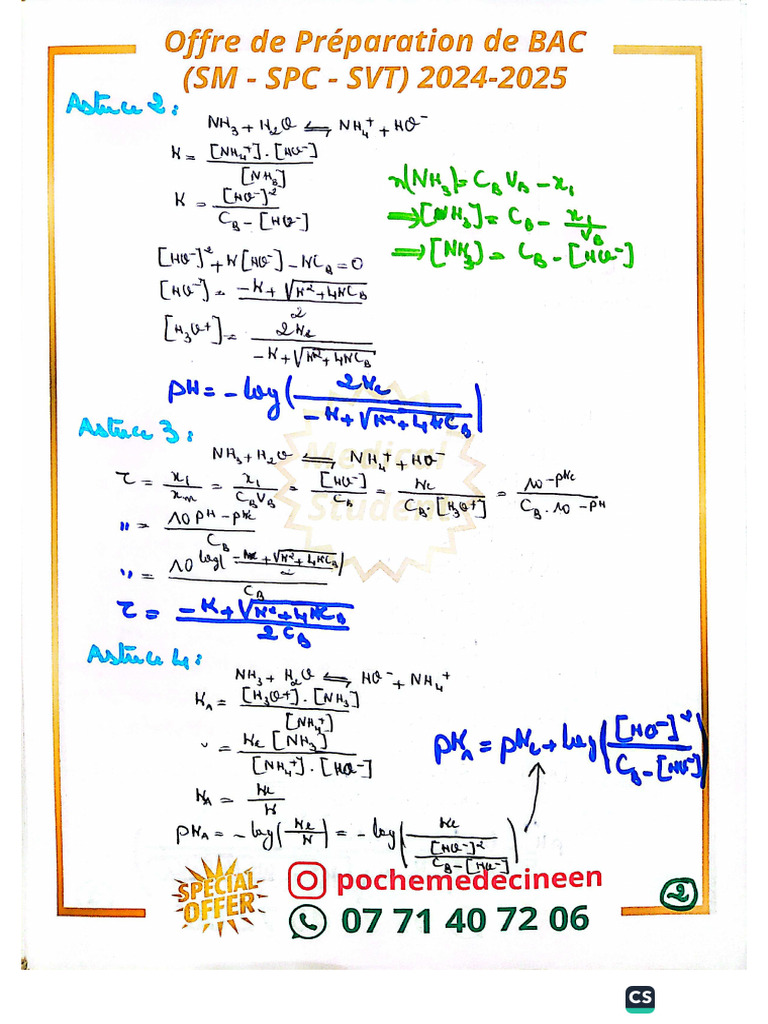 Offre de Préparation de BAC
(SM - SPC - SVT) 2024-2025
Astuce 2 :
NH₃ + H₂O ⇌ NH₄⁺ + HO⁻
K = [NH₄⁺] . [HO⁻] / [NH₃]
K = [HO⁻]² / (C_B - [HO⁻])
n(NH₃) = C_B V_B - x₁
⟹ [NH₃] = C_B - x₁ / V_B
⟹ [NH₃] = C_B - [HO⁻]
[HO⁻]² + K[HO⁻] - KC_B = 0
[HO⁻] = (-K + √(K² + 4KC_B)) / 2
[H₃O⁺] = 2Ke / (-K + √(K² + 4KC_B))
pH = - log(2Ke / (-K + √(K² + 4KC_B)))
Astuce 3 :
NH₃ + H₂O ⇌ NH₄⁺ + HO⁻
τ = x₁ / x_m = x₁ / (C_B V_B) = [HO⁻] / C_B = Ke / (C_B . [H₃O⁺]) = 10^(-pKe) / (C_B . 10^(-pH))
" = 10^(pH - pKe) / C_B
" = 10^(log((-K + √(K² + 4KC_B)) / 2)) / C_B
τ = (-K + √(K² + 4KC_B)) / 2C_B
Astuce 4 :
NH₃ + H₂O ⇌ HO⁻ + NH₄⁺
K_A = [H₃O⁺] . [NH₃] / [NH₄⁺]
" = Ke [NH₃] / ([NH₄⁺] . [HO⁻])
pK_A = pKe + log([HO⁻]² / (C_B - [HO⁻]))
K_A = Ke / K
pK_A = - log(Ke / K) = - log(Ke / ([HO⁻]² / (C_B - [HO⁻])))
Medical
Student
SPECIAL
OFFER
pochemedecineen
07 71 40 72 06
2
CS